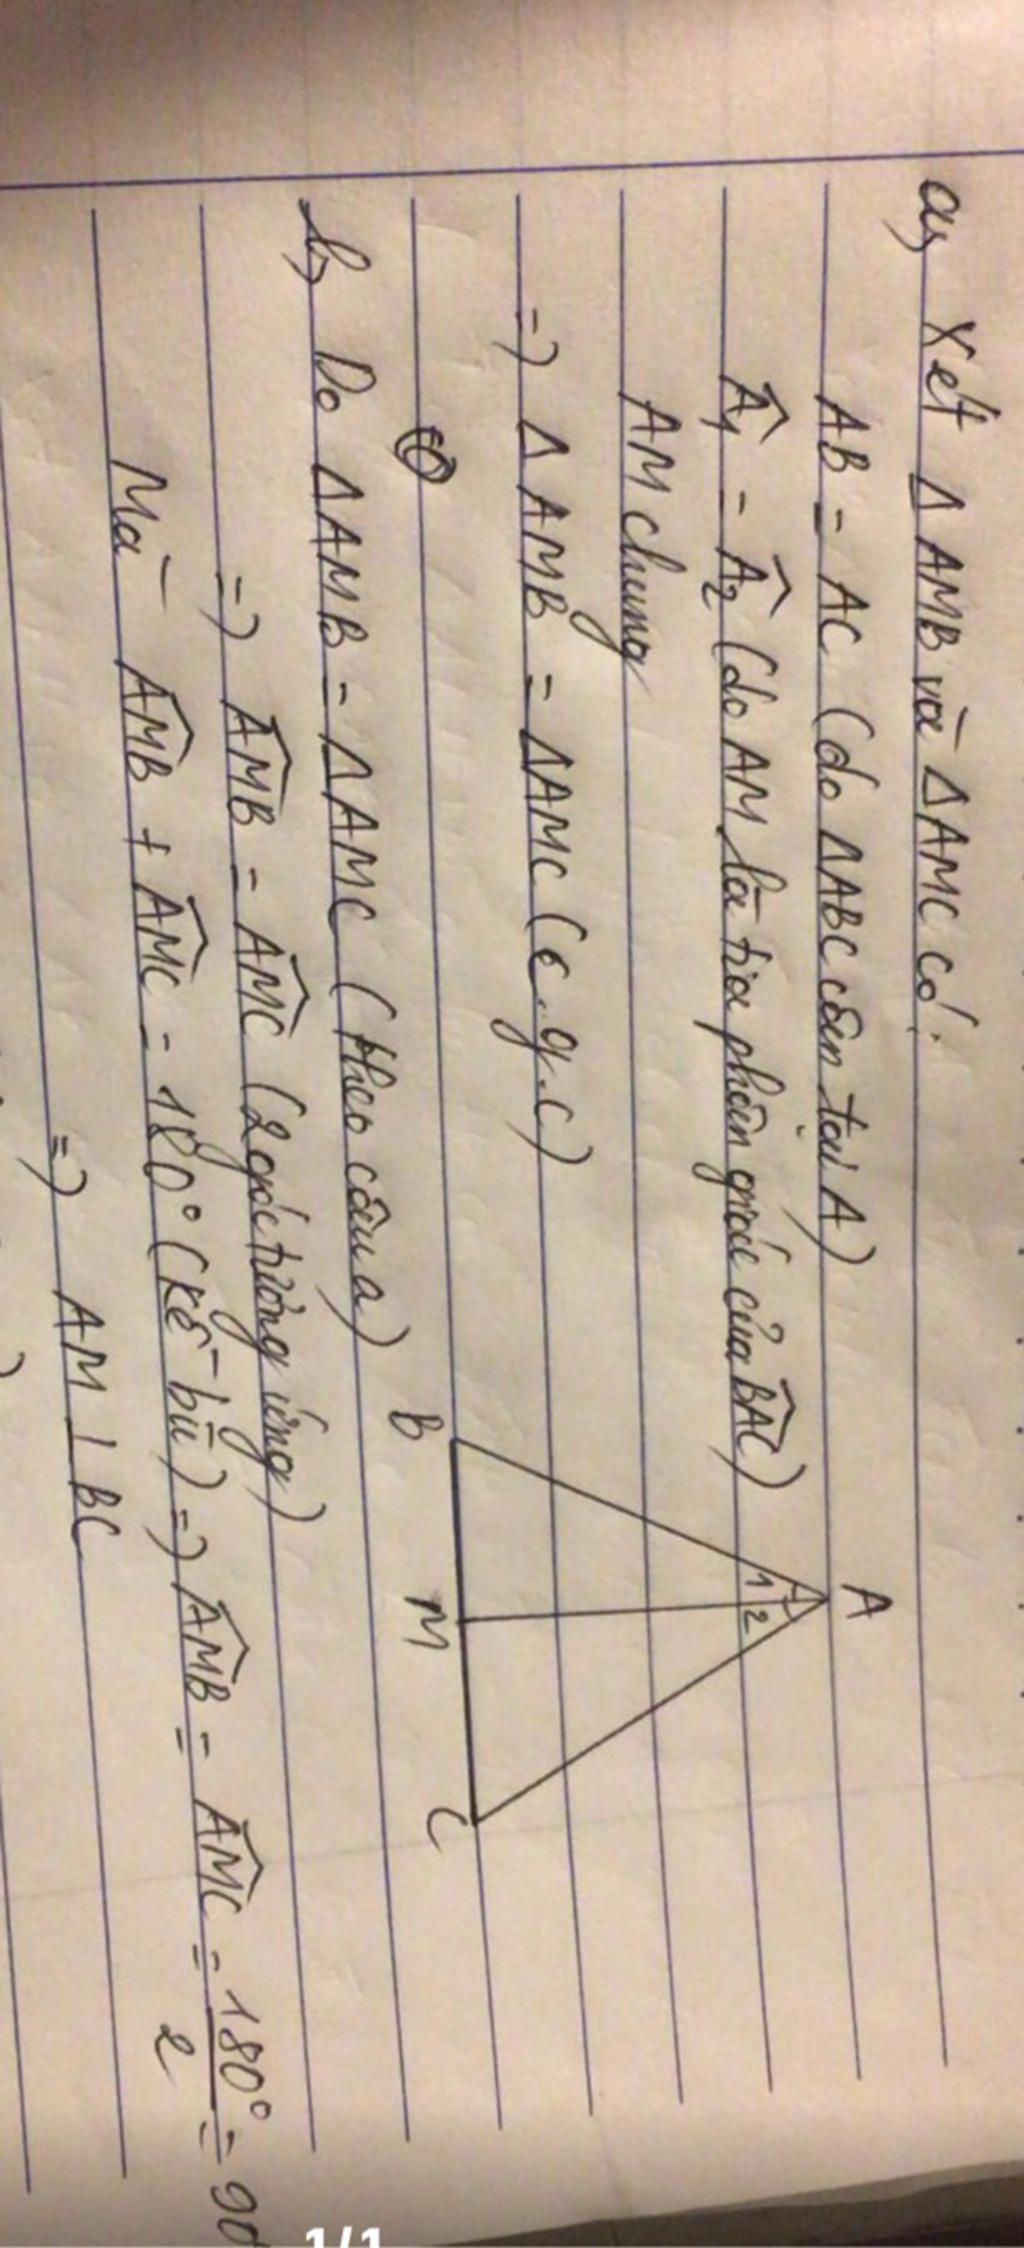 a, Xét Δ AMB và Δ AMC có:
AB = AC (do Δ ABC cân tại A)
Â1 = Â2 (do AM là tia phân giác của BAC)
AM chung
=> Δ AMB = Δ AMC (c.g.c)
b, Do Δ AMB = Δ AMC (theo câu a)
=> AMB = AMC (2 góc tương ứng)
Mà AMB + AMC = 180° (kề bù) => AMB = AMC = 180°/2 = 90
=> AM ⊥ BC
A
1 2
B
M
C
1/1